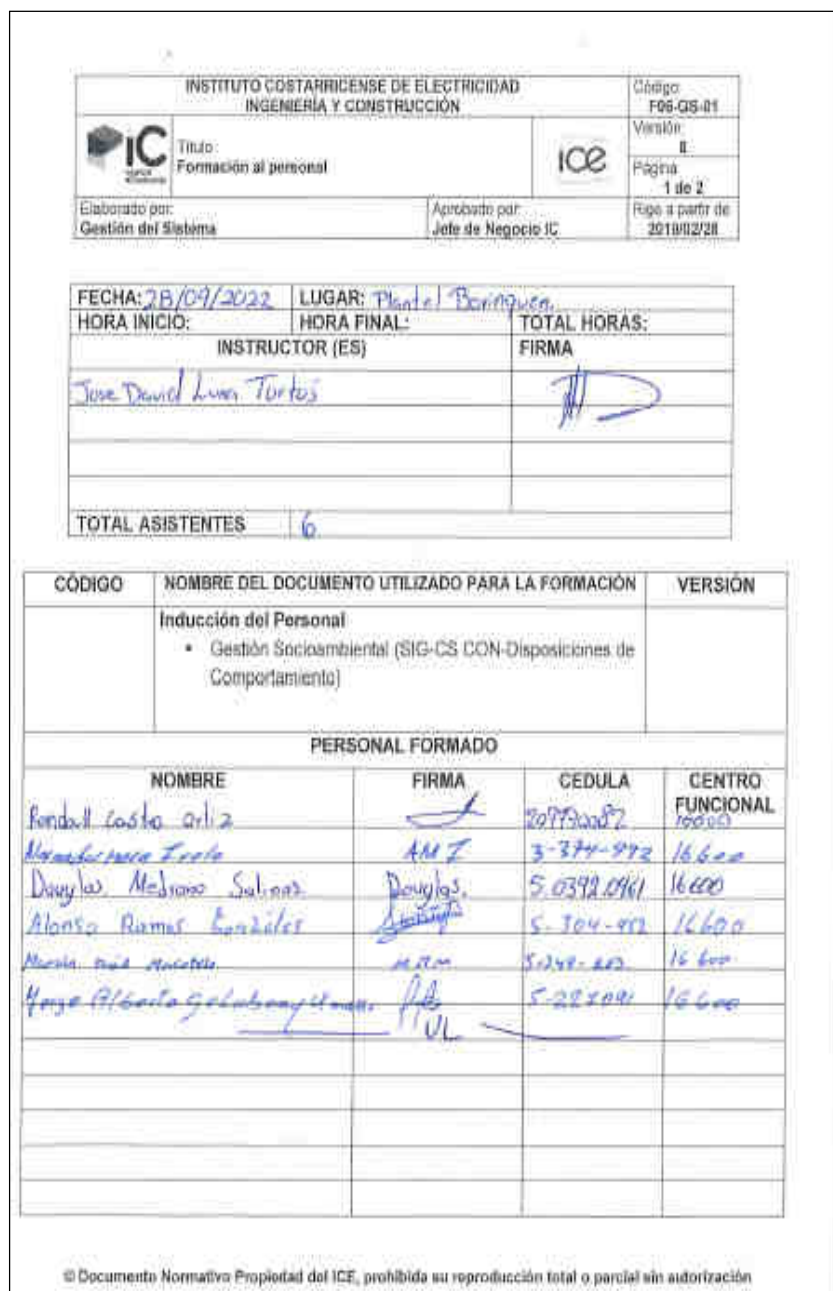 INSTITUTO COSTARRICENSE DE ELECTRICIDAD
INGENIERÍA Y CONSTRUCCIÓN
Código:
F06-GS-01
PIC
Título:
Formación al personal
ice
Versión:
8
Página
1 de 2
Elaborado por:
Gestión del Sistema
Aprobado por:
Jefe de Negocio IC
Rige a partir de
2019/02/28
FECHA: 28/09/2022 LUGAR: Plantel Borinquen.
HORA INICIO: HORA FINAL: TOTAL HORAS:
INSTRUCTOR (ES) FIRMA
Jose David
TOTAL ASISTENTES 6
CÓDIGO NOMBRE DEL DOCUMENTO UTILIZADO PARA LA FORMACIÓN VERSIÓN
Inducción del Personal
• Gestión Socioambiental (SIG-CS CON-Disposiciones de
Comportamiento)
PERSONAL FORMADO
NOMBRE FIRMA CEDULA CENTRO
FUNCIONAL
Randall Castro Ortiz
AMI 16600
Douglas Medrano Salinas Douglas. 5.0392.0961 16600
Alonso Ramos González 16600
16600
Alberto 16600
© Documento Normativo Propiedad del ICE, prohibida su reproducción total o parcial sin autorización